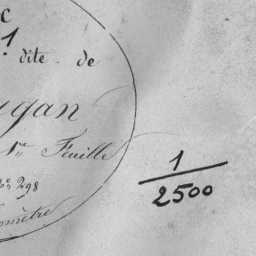 c
1
dite de
ugan
1re Feuille
No 298
omètre
1/2500